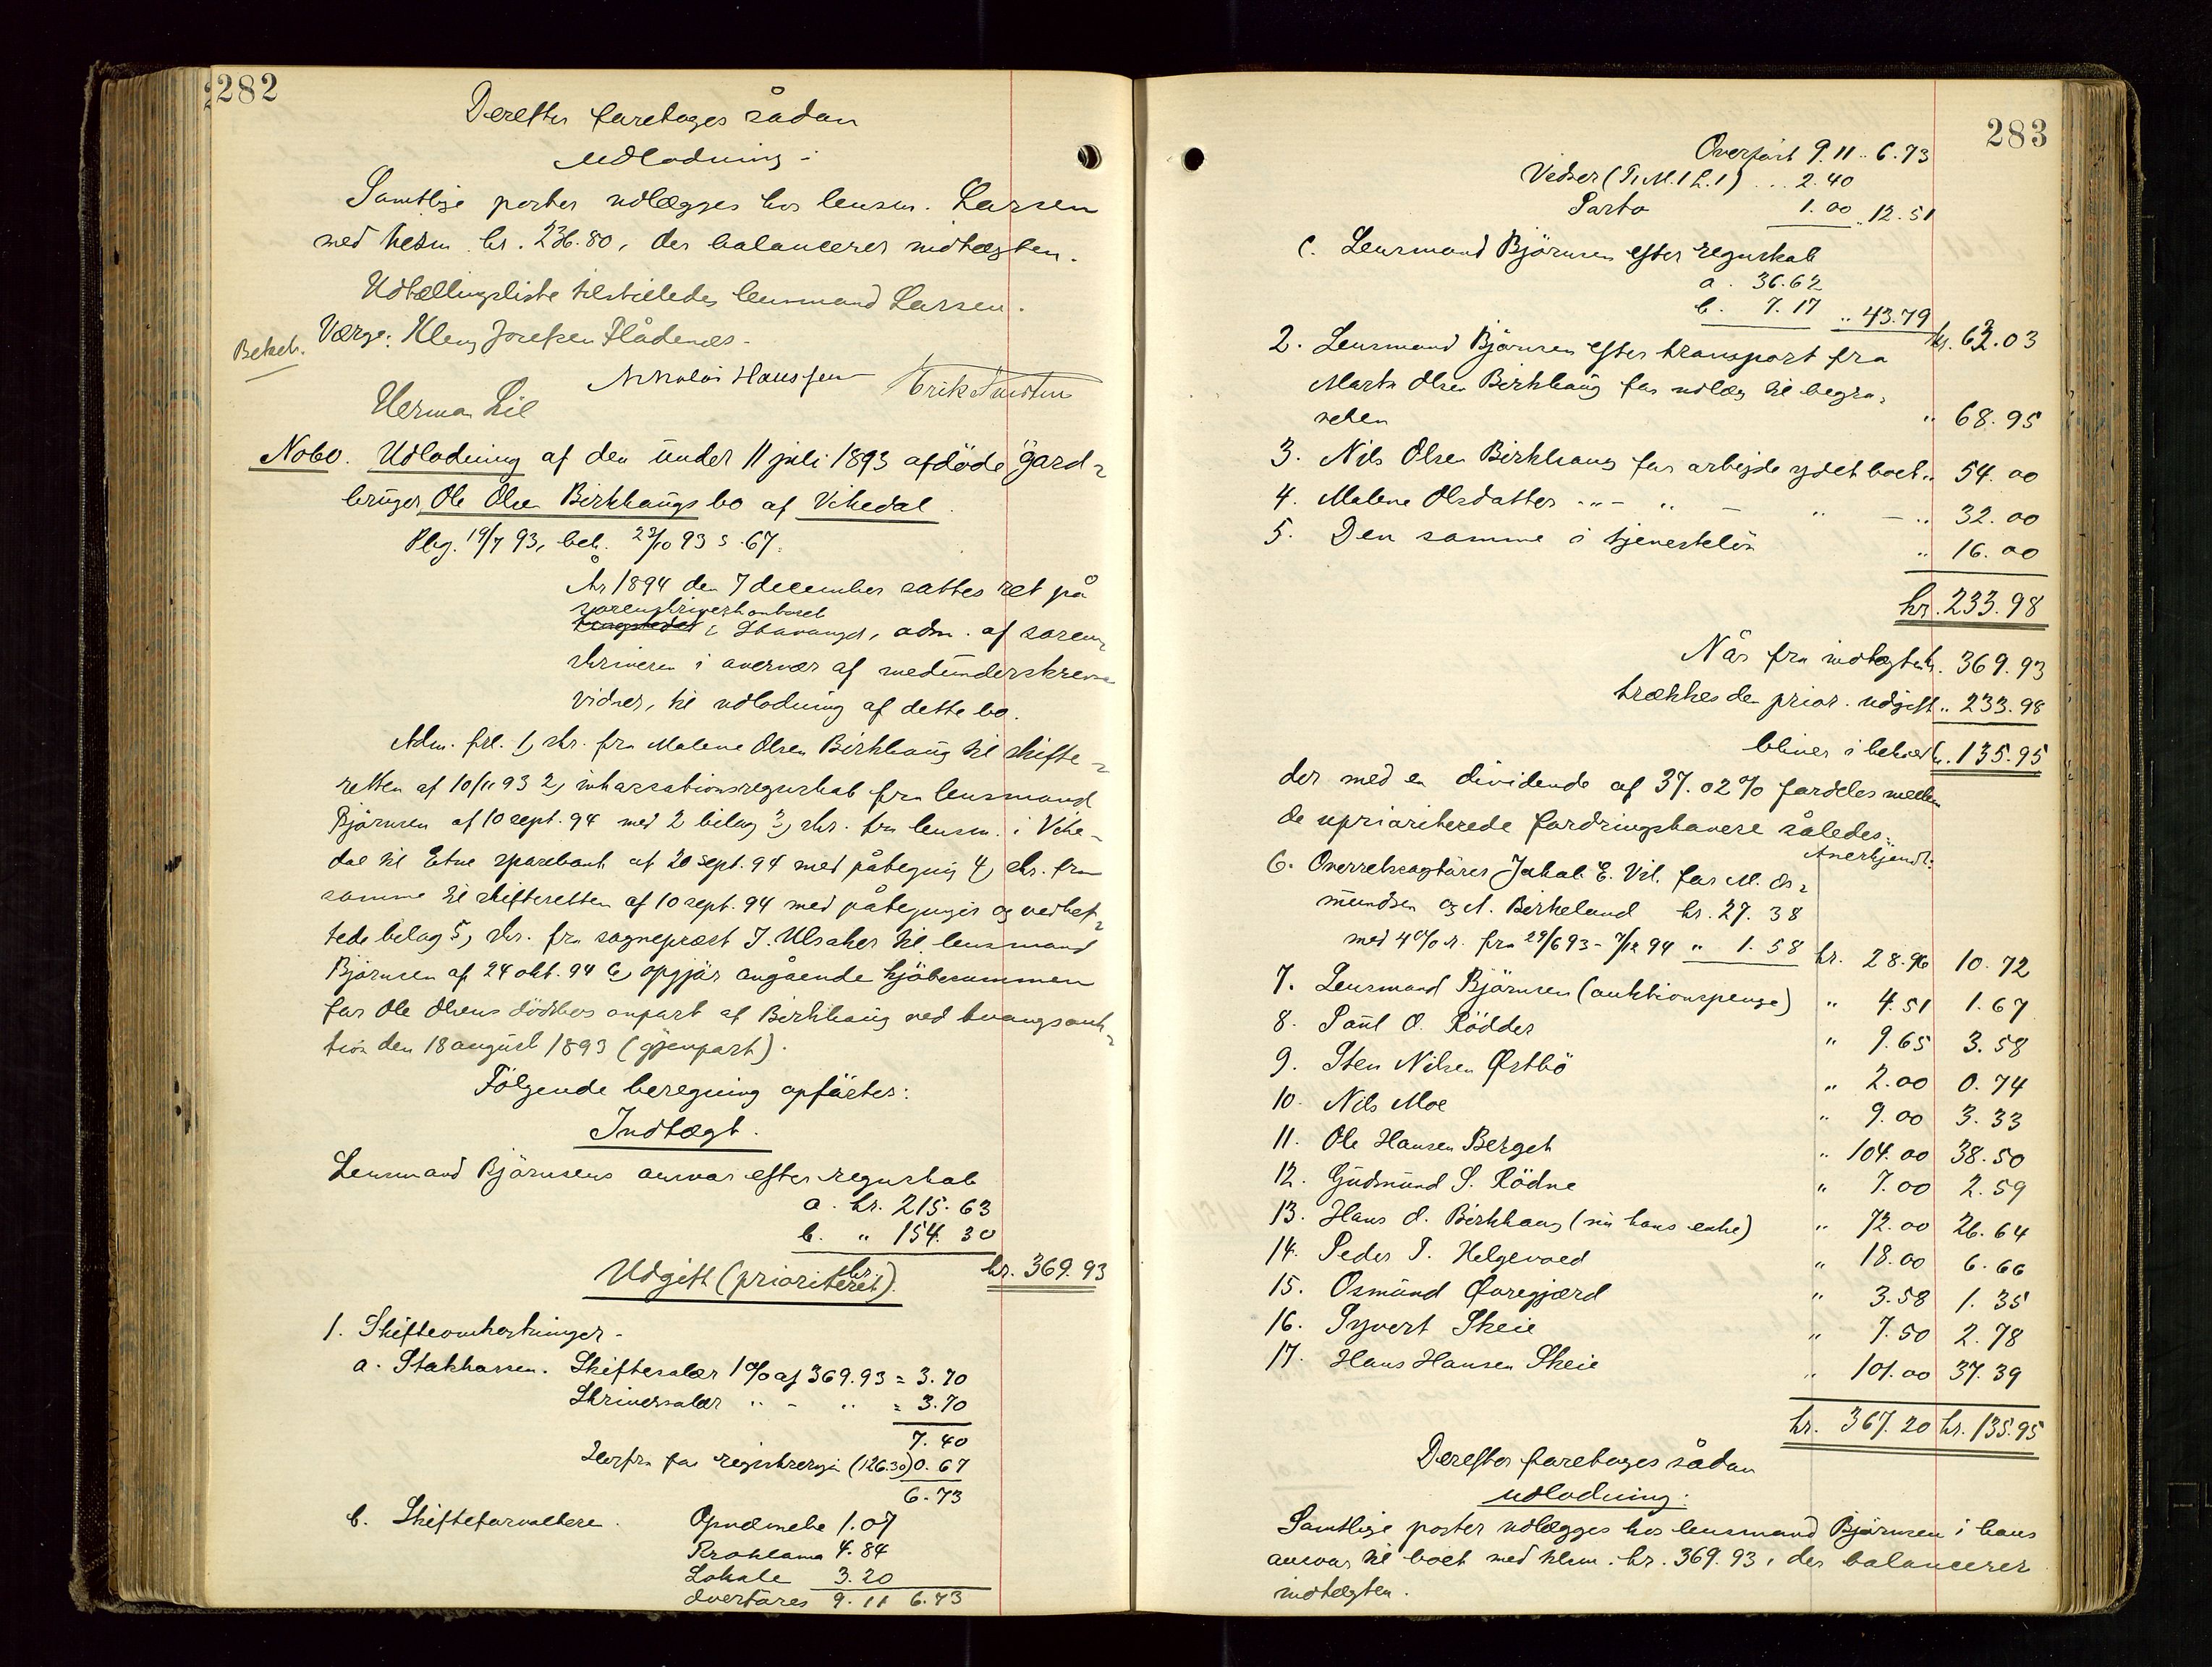 282
Derefter foretages sådan
udlodning:
Samtlige poster udlægges hos lensm. Larsen
med tilsm. kr. 236.80, der balancerer indtægten.
Udtællingsliste tilstilledes lensmand Larsen.
Værge: Kleng Josefsen Flådenes.
Bekch.
Nikolai Hanssen Erik Knudsen
Herman Lie
No 60. Udlodning af den under 11 juli 1893 afdöde gård-
bruger Ole Olsen Birkhaugs bo af Vikedal.
Plg. 19/7 93, beh. 23/10 93 s. 67.
År 1894 den 7 december sattes ret på
sorenskriverkontoret
tingstedet i Stavanger, adm. af soren-
skriveren i overvær af medunderskrevne
vidner, til udlodning af dette bo.
Adm. frl. 1, skr. fra Malene Olsen Birkhaug til skifte-
retten af 10/11 93 2, inkassationsregnskab fra lensmand
Björnsen af 10 sept. 94 med 2 bilag 3, skr. fra lensm. i Vike-
dal til Etne sparebank af 20 sept. 94 med påtegning 4, skr. fra
samme til skifteretten af 10 sept. 94 med påtegninger og vedhef-
tede bilag 5, skr. fra sogneprest J. Ulsaker til lensmand
Björnsen af 24 okt. 94 6, opgjör angående kjöbesummen
for Ole Olsens dödsbos anpart af Birkhaug ved tvangsauk-
tion den 18 august 1893 (gjenpart).
Fölgende beregning opförtes:
Indtægt.
Lensmand Björnsens ansvar efter regnskab
a. kr. 215.63
b. " 154.30
kr. 369.93
Udgift (prioriteret).
1. Skifteomkostninger.
a. Statkassen. Skiftesalær 1% af 369.93 = 3.70
Skriversalær " - " = 3.70
7.40
Herfra for registrering (126.30) 0.67
6.73
b. Skifteforvaltere. Opnævnelse 1.07
Proklama 4.84
Lokale 3.20
Overföres 9.11 6.73
283
Overfört 9.11 .. 6.73
Vidner (T. M. 1 L. 1) ... 2.40
Porto 1.00 .. 12.51
c. Lensmand Björnsen efter regnskab
a. 36.62
b. 7.17 .. 43.79
kr. 63.03
2. Lensmand Björnsen efter transport fra
Marta Olsen Birkhaug for udlæg til begra-
velsen " 68.95
3. Nils Olsen Birkhaug for arbejde ydet boet .. 54.00
4. Malene Olsdatter .. - " - " - .. 32.00
5. Den samme i tjenestelön .. 16.00
kr. 233.98
Når fra indtægten kr. 369.93
trækkes den prior. udgift .. 233.98
bliver i behold kr. 135.95
der med en dividende af 37.02% fordeles mellem
de uprioriterede fordringshavere således:
Anerkjendt:
6. Overretssagförer Jakob E. Vil. for M. As-
mundsen og A. Birkeland kr. 27.38
med 4% r. fra 29/6 93 - 7/12 94 " 1.58 kr. 28.96 10.72
7. Lensmand Björnsen (auktionspenge) " 4.51 1.67
8. Paul O. Rödder " 9.65 3.58
9. Sten Nilsen Østbö " 2.00 0.74
10. Nils Moe " 9.00 3.33
11. Ole Hansen Berget " 104.00 38.50
12. Gudmund S. Rödne " 7.00 2.59
13. Hans O. Birkhaug (nu hans enke) " 72.00 26.64
14. Peder T. Helgevold " 18.00 6.66
15. Osmund Øvregjærd " 3.58 1.35
16. Syvert Skeie " 7.50 2.78
17. Hans Hansen Skeie " 101.00 37.39
kr. 367.20 kr. 135.95
Derefter foretages sådan
udlodning:
Samtlige poster udlægges hos lensmand Björnsen i hans
ansvar til boet med tilsm. kr. 369.93, der balancerer
indtægten.